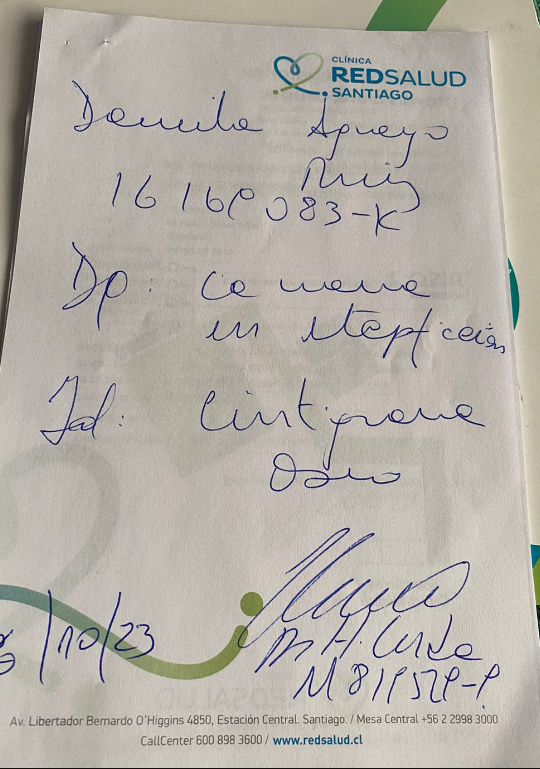 CLÍNICA
REDSALUD
SANTIAGO
Daniela Aguayo
Ruiz
083-K
Dg: Ca mama
en etapificación
Ind: Cintigrama
Oseo
/10/23
Dr H. Cerda
Av. Libertador Bernardo O'Higgins 4850, Estación Central. Santiago. / Mesa Central +56 2 2998 3000
CallCenter 600 898 3600 / www.redsalud.cl